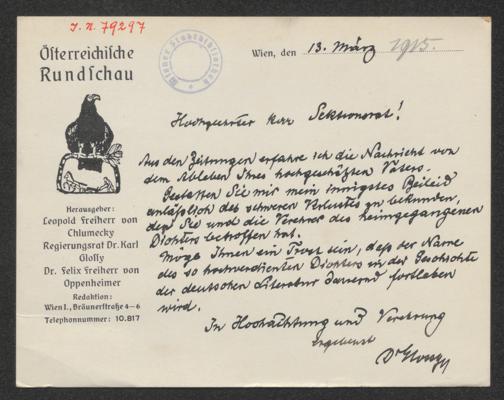 J. N. 79297
Österreichische
Rundschau
Wien, den 13. März 1915.
Herausgeber:
Leopold Freiherr von
Chlumecky
Regierungsrat Dr. Karl
Glossy
Dr. Felix Freiherr von
Oppenheimer
Redaktion:
Wien I., Bräunerstraße 4–6
Telephonnummer: 10.817
Hochgeehrter Herr Sektionsrat!
Aus den Zeitungen erfahre ich die Nachricht von
dem Ableben Ihres hochgeschätzten Vaters.
Gestatten Sie mir mein innigstes Beileid
anläßlich des schweren Verlustes zu bekunden,
den Sie und die Verehrer des heimgegangenen
Dichters betroffen hat.
Möge Ihnen ein Trost sein, daß der Name
des so hochverdienten Dichters in der Geschichte
der deutschen Literatur dauernd fortleben
wird.
In Hochachtung und Verehrung
ergebenst
Dr Glossy